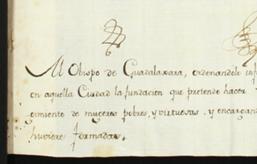 Al Obispo de Guadalaxara, ordenandole inf
en aquella Ciudad la fundacion que pretende hacer
cimiento de mugeres pobres, y virtuosas, y encargan
huviere formadas.